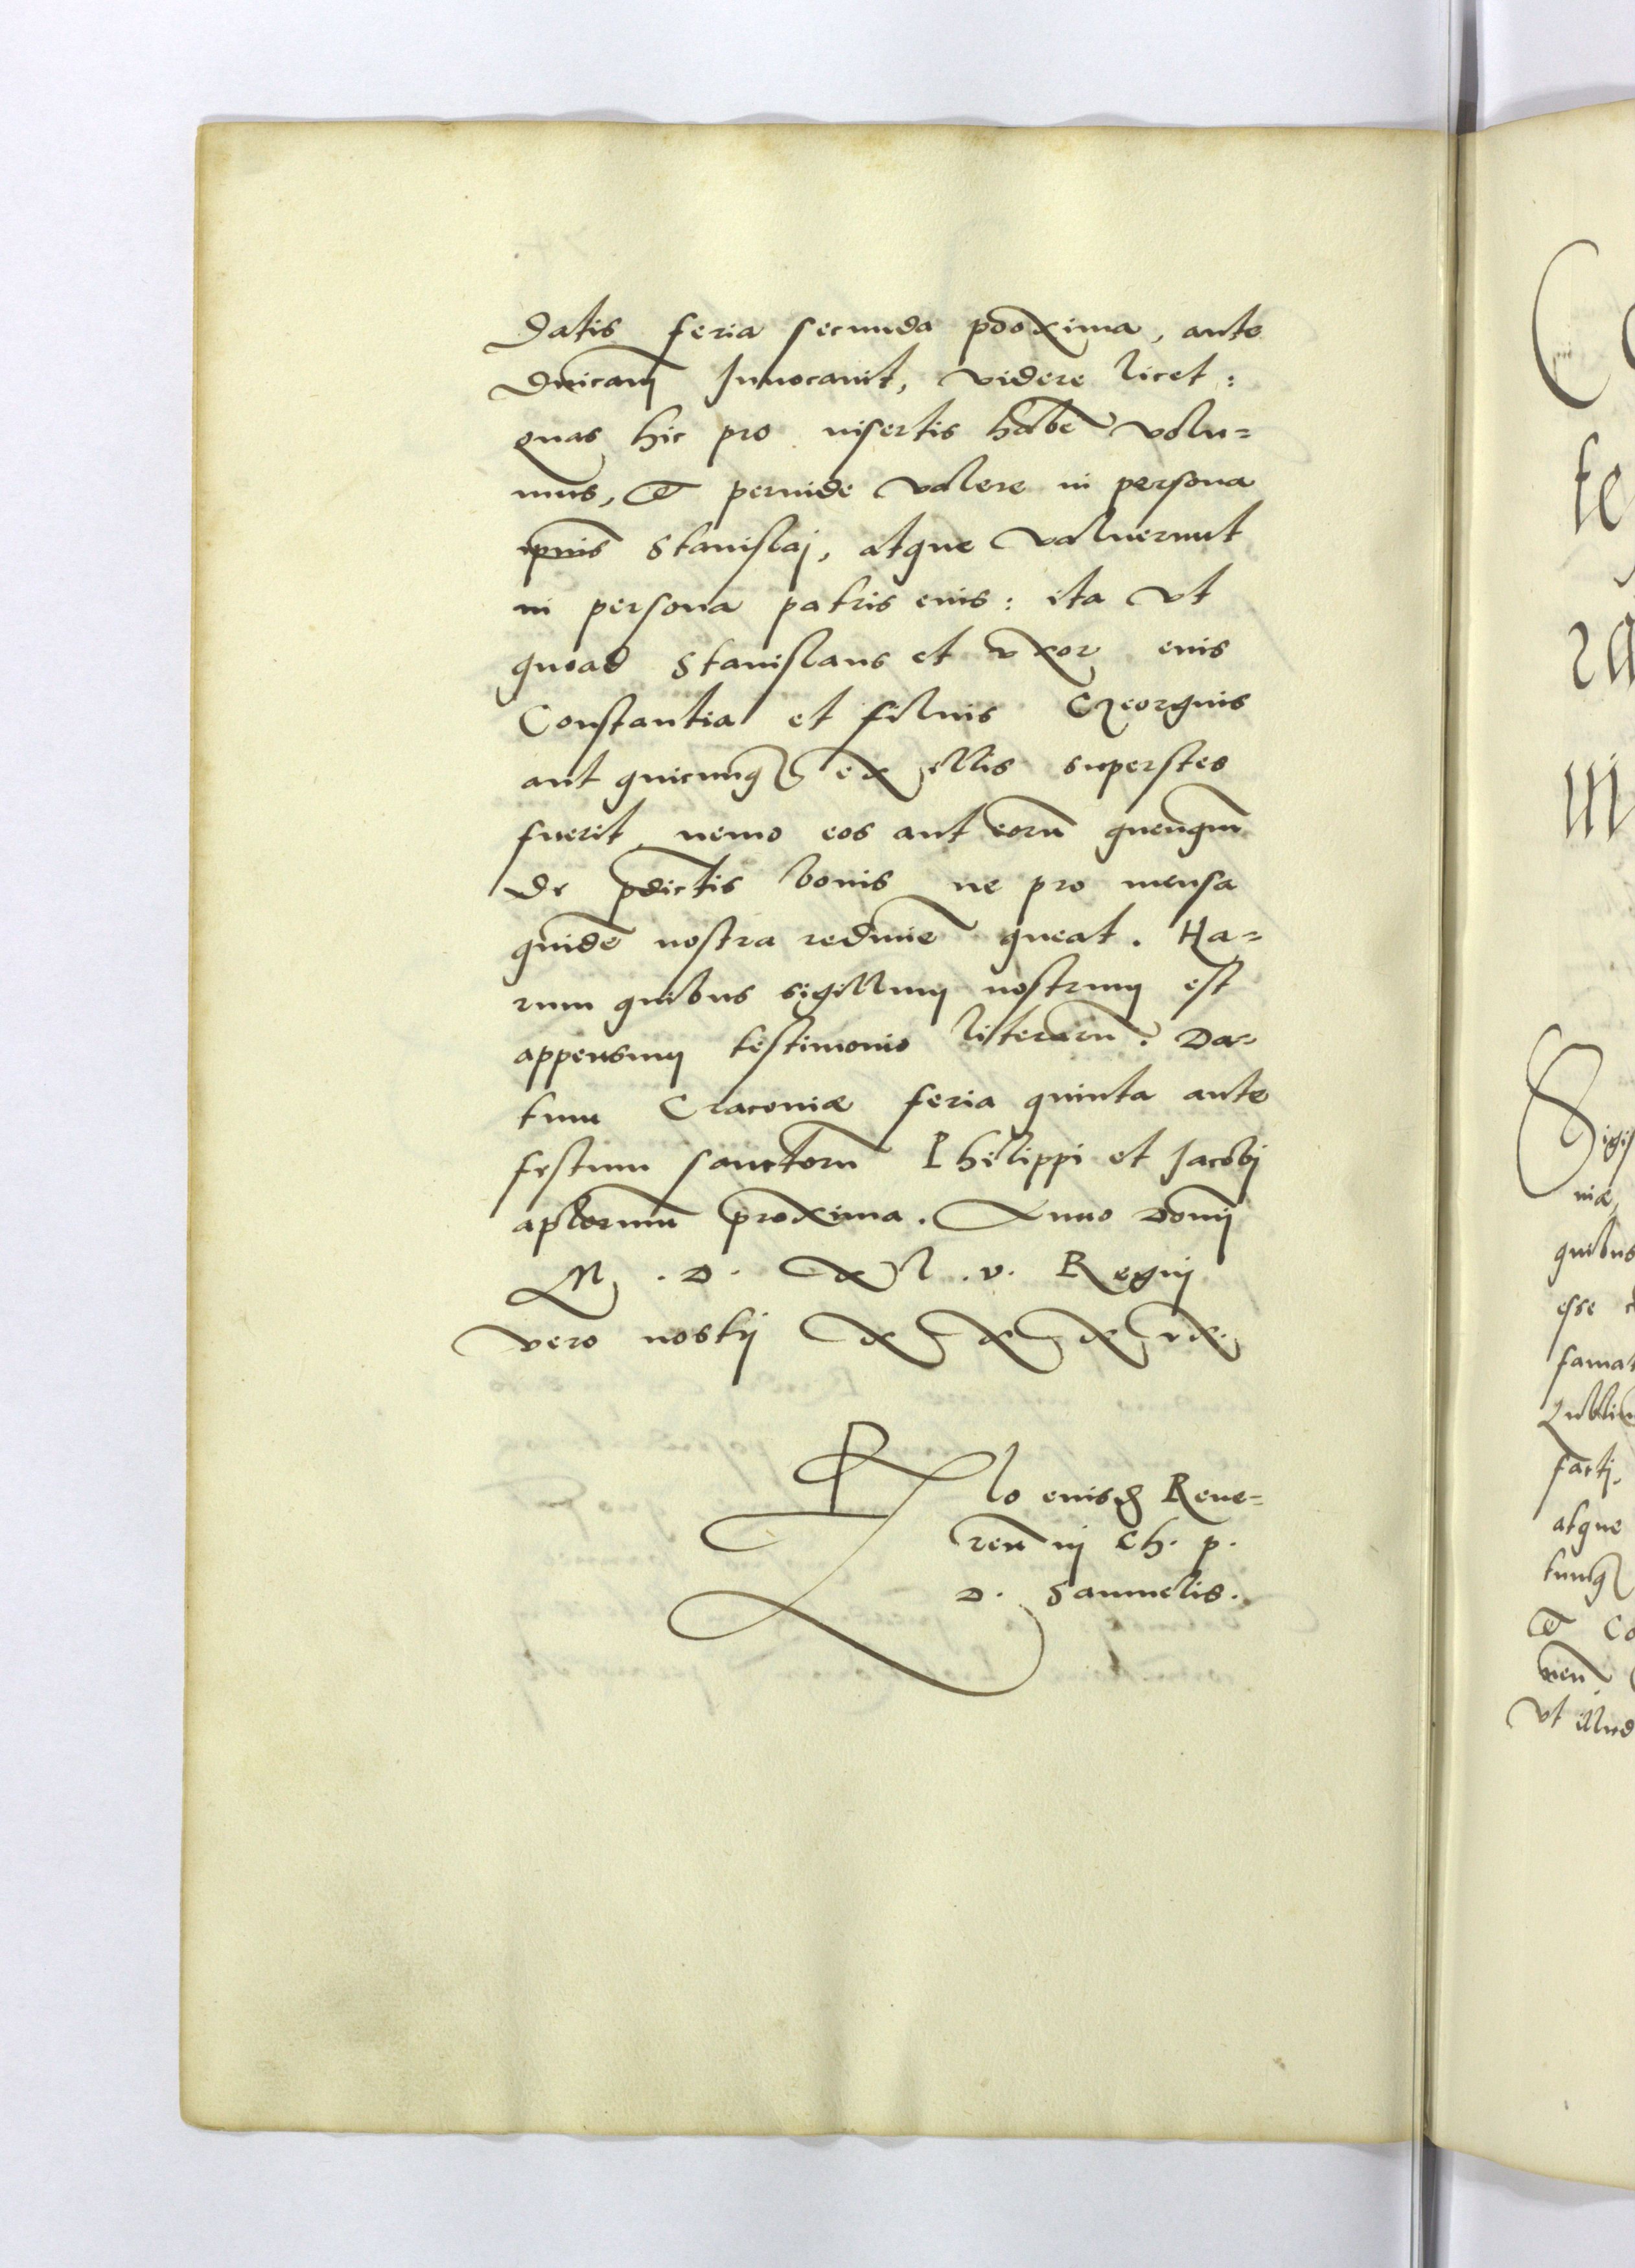 Datis feria secunda proxima, ante
Dnicam Inuocauit, videre licet:
quas hic pro insertis habe volu=
mus, et perinde valere in persona
ipsius Stanislaj, atque valuerunt
in persona patris eius: ita vt
quoad Stanislaus et vxor eius
Constantia et filius Georgius
aut quicunq ex illis superstes
fuerit, nemo eos aut eoru quenqm
de pdictis bonis ne pro mensa
quide nostra redime queat. Ha=
rum quibus sigillum nostrum est
appensum testimonio literaru. Da=
tum Cracouiæ feria quinta ante
festum sanctoru Philippi et Jacobj
aplorum proxima. Anno Domij
M . D . XL . v. Regnj
vero nostrj XXXIX.
Rlo eiusd Reue=
ren in Ch. p.
D. Samuelis.
C
te
ra
Sigis
niæ,
quibus
esse
famat
Lublin
factj,
atque
tunq
et Co
nen
vt illud